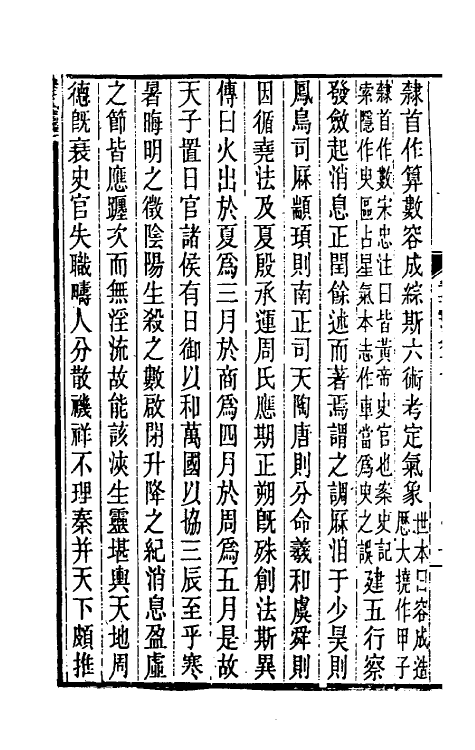 隸首作算數容成綜斯六術考定氣象世本曰容成造
歷大撓作甲子
隸首作數宋忠注曰皆黃帝史官也案史記
索隱作臾區占星氣本志作車當爲臾之誤
建五行察
發斂起消息正閏餘述而著焉謂之調厤洎于少昊則
鳳鳥司厤顓頊則南正司天陶唐則分命羲和虞舜則
因循堯法及夏殷承運周氏應期正朔旣殊創法斯異
傳曰火出於夏爲三月於商爲四月於周爲五月是故
天子置日官諸侯有日御以和萬國以協三辰至乎寒
暑晦明之徵陰陽生殺之數啟閉升降之紀消息盈虛
之節皆應躔次而無淫流故能該浹生靈堪輿天地周
德旣衰史官失職疇人分散禨祥不理秦并天下頗推